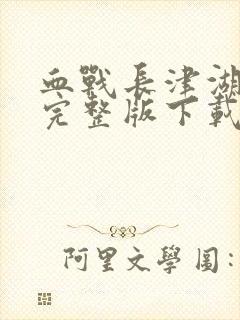 血戰長津湖
完整版下載
阿里文學圖: